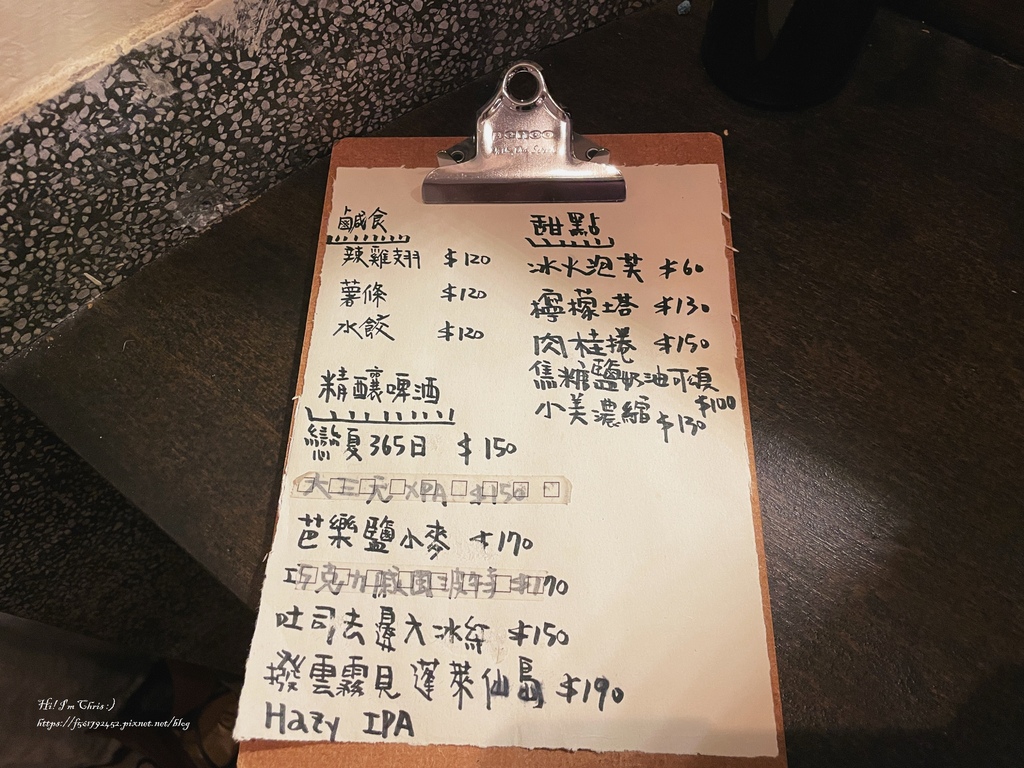 penco
鹹食
辣雞翅 $120
薯條 $120
水餃 $120
甜點
冰火泡芙 $60
檸檬塔 $130
肉桂捲 $150
焦糖鹽奶油可頌 $100
小美濃縮 $130
精釀啤酒
戀夏365日 $150
大三元 XPA $150
芭樂鹽小麥 $170
巧克力 波特 $170
吐司去邊大冰紅 $150
撥雲霧見蓬萊仙島 $190
Hazy IPA
Hi! I'm Chris :)
https://f561792452.pixnet.net/blog